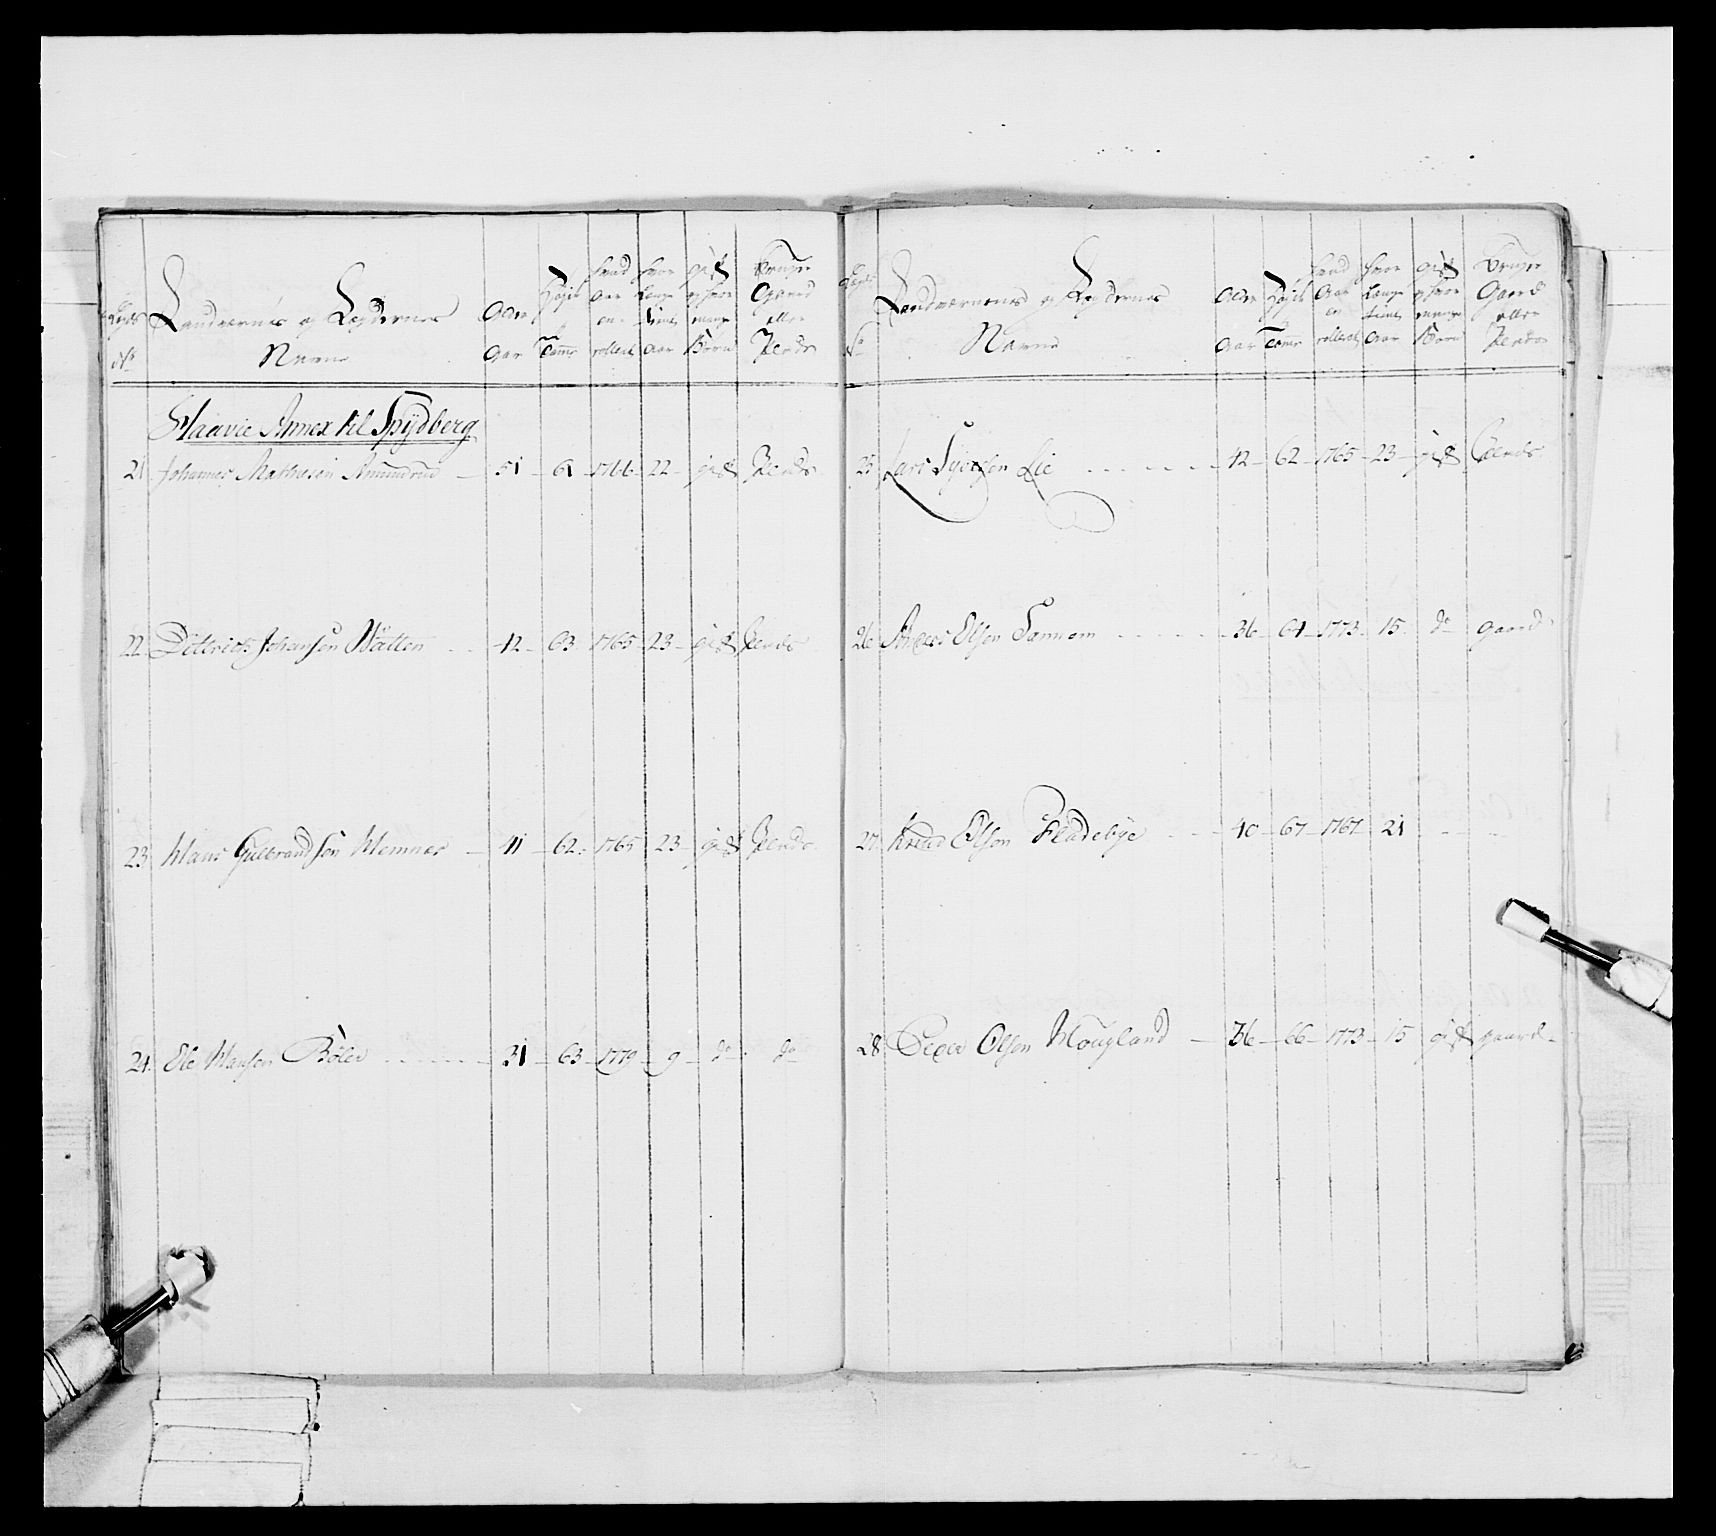 Lægds No | Landværnes og Lægdernes Navne | Alder Aar | Høyde Tome | hvad Aar en- rolleret | hvor Længe tient Aar | gift og hvor mange Børn | bruger Gaard eller Plads
Haavie Annex til Spydberg
21 Johannes Mathiesen Amundrud — 51 — 61 — 1766 — 22 — gift Plads
22 Ditterich Johansen Wætten — 42 — 63 — 1765 — 23 — gift Plads
23 Hans Gulbrandsen Hemnes — 41 — 62 — 1765 — 23 — gift Plads
24 Ole Hansen Böler — 31 — 63 — 1779 — 9 — do do
No | Landværnenes og Lægdernes Navne | Alder Aar | Høyde Tome | hvad Aar en rolleret | hvor Længe tient Aar | gift og hvor mange Børn | bruger Gaard eller Plads
25 Lars Syversen Lie — 42 — 62 — 1765 — 23 — gift Plads
26 Anders Olsen Sannem — 36 — 64 — 1773 — 15 do gaard
27 Knud Olsen Fladebye — 40 — 67 — 1767 — 21
28 Peder Olsen Hougland — 36 — 66 — 1773 — 15 gift gaard